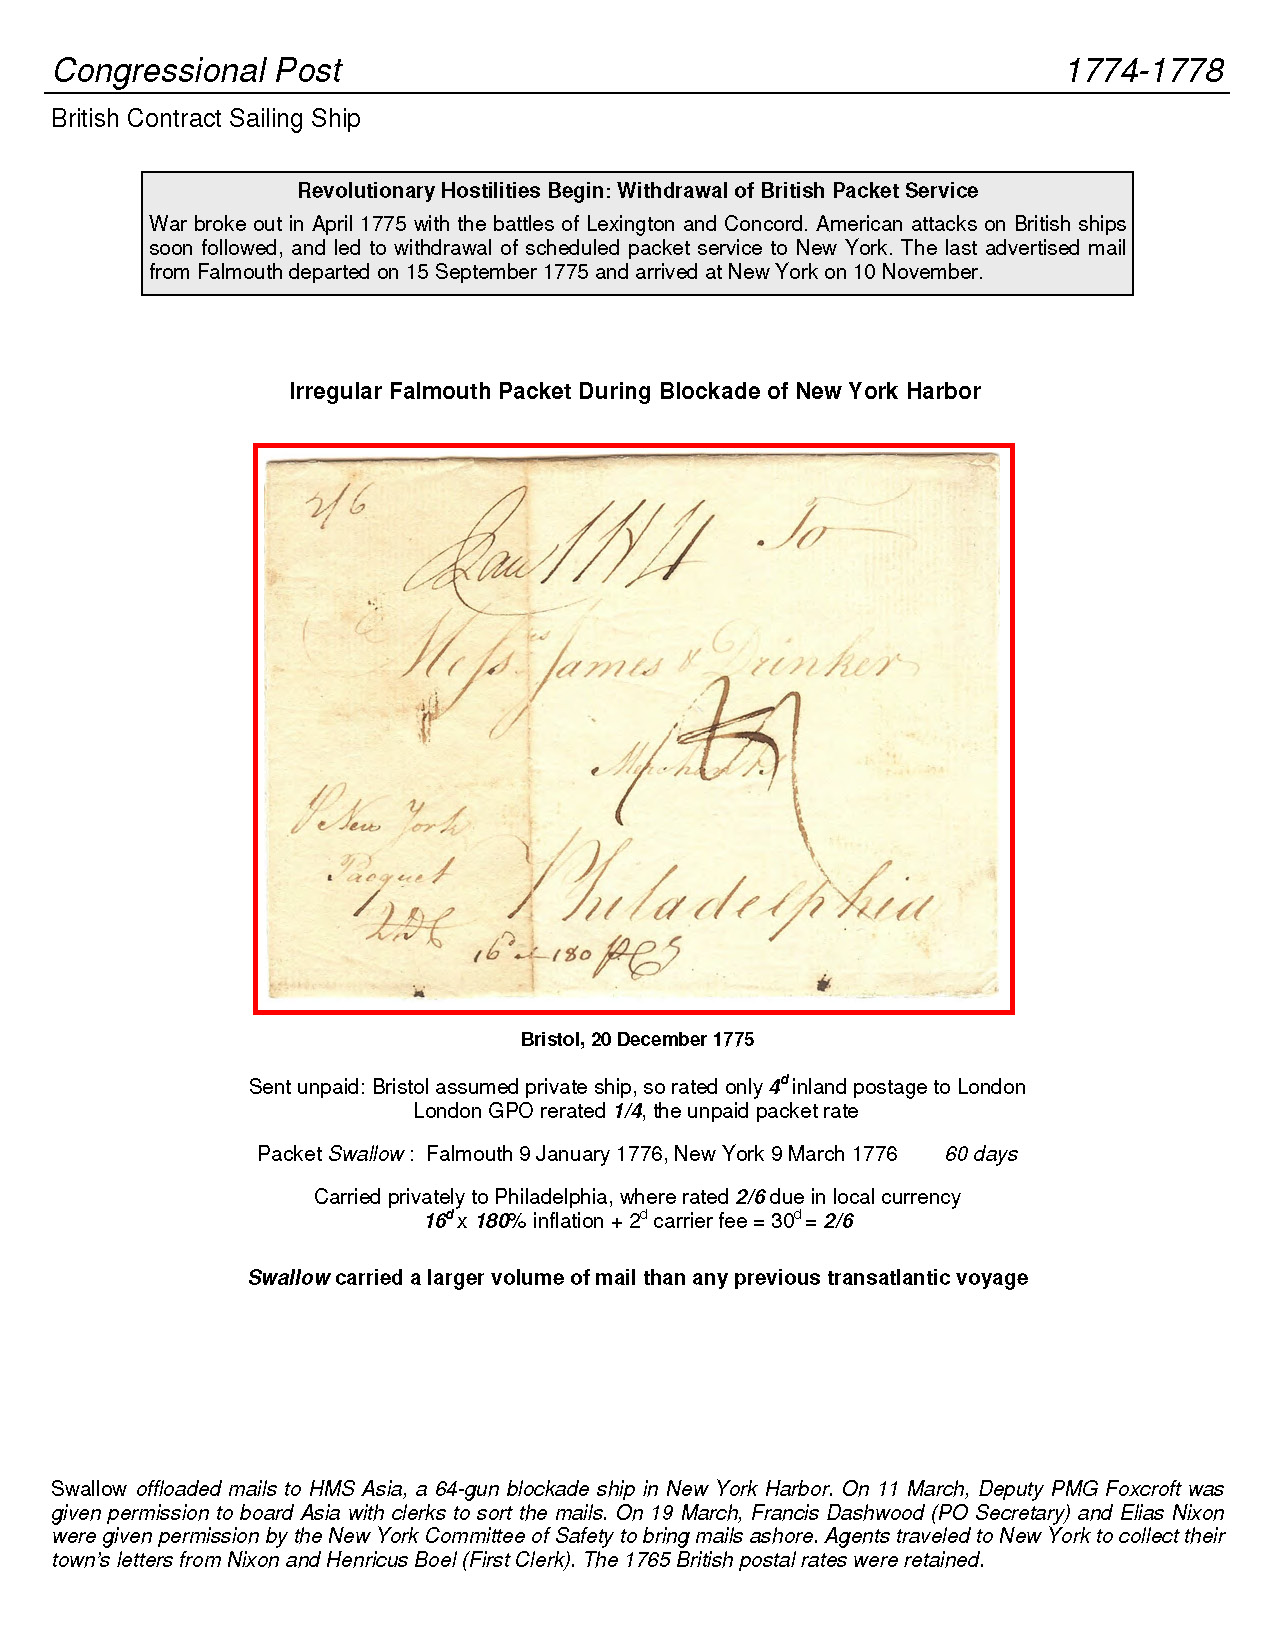 Congressional Post 1774-1778
British Contract Sailing Ship
Revolutionary Hostilities Begin: Withdrawal of British Packet Service
War broke out in April 1775 with the battles of Lexington and Concord. American attacks on British ships
soon followed, and led to withdrawal of scheduled packet service to New York. The last advertised mail
from Falmouth departed on 15 September 1775 and arrived at New York on 10 November.
Irregular Falmouth Packet During Blockade of New York Harbor
2/6
To
Messrs James & Drinker
Merchants
P New York
Pacquet
Philadelphia
16d 180
Bristol, 20 December 1775
Sent unpaid: Bristol assumed private ship, so rated only 4d inland postage to London
London GPO rerated 1/4, the unpaid packet rate
Packet Swallow : Falmouth 9 January 1776, New York 9 March 1776 60 days
Carried privately to Philadelphia, where rated 2/6 due in local currency
16d x 180% inflation + 2d carrier fee = 30d = 2/6
Swallow carried a larger volume of mail than any previous transatlantic voyage
Swallow offloaded mails to HMS Asia, a 64-gun blockade ship in New York Harbor. On 11 March, Deputy PMG Foxcroft was
given permission to board Asia with clerks to sort the mails. On 19 March, Francis Dashwood (PO Secretary) and Elias Nixon
were given permission by the New York Committee of Safety to bring mails ashore. Agents traveled to New York to collect their
town's letters from Nixon and Henricus Boel (First Clerk). The 1765 British postal rates were retained.